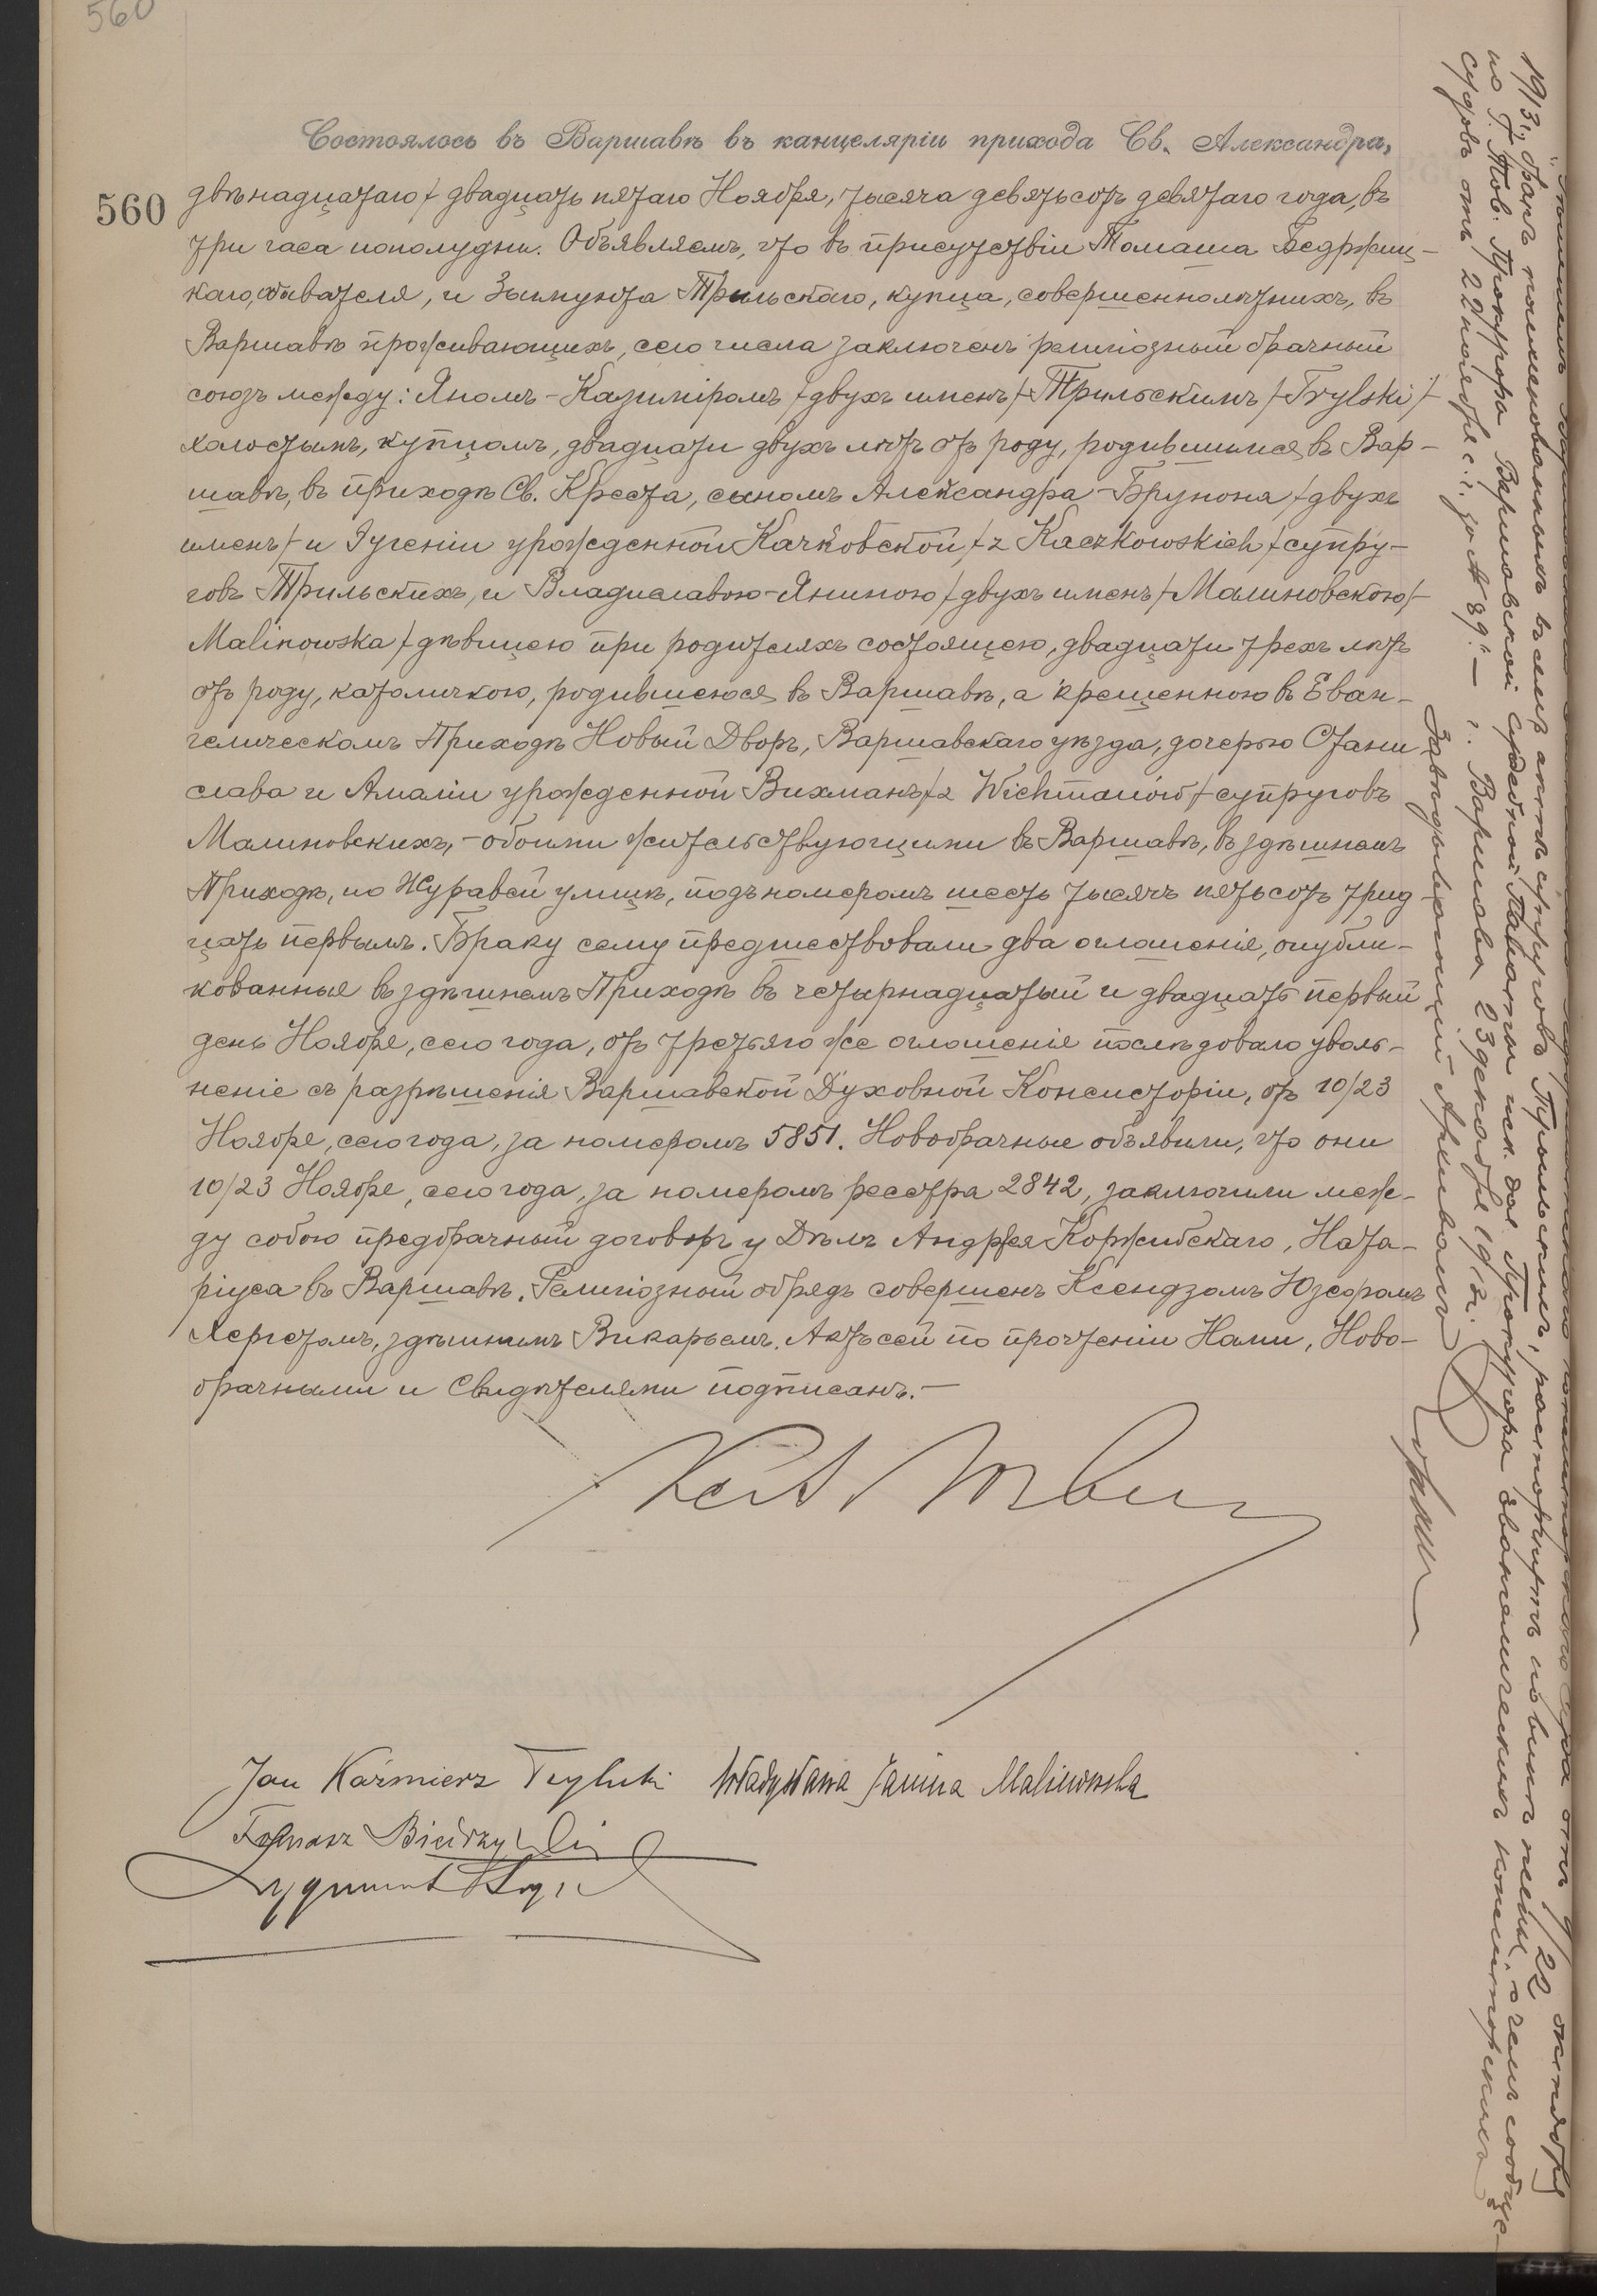 560
Состоялось въ Варшавѣ въ канцеляріи прихода Св. Александра,
560
двѣнадцатаго / двадцать пятаго Ноября, тысяча девятьсотъ девятаго года, въ
три часа пополудни. Объявляемъ, что въ присутствіи Томаша Беджиц-
каго, обывателя, и Зыгмунта Трыльскаго, купца, совершеннолѣтнихъ, въ
Варшавѣ проживающихъ, сего числа заключенъ религіозный брачный
союзъ между: Яномъ-Казиміромъ /двухъ именъ/ Трыльскимъ /Trylski/
холостымъ, купцомъ, двадцати двухъ лѣтъ отъ роду, родившимся въ Вар-
шавѣ, въ приходѣ Св. Креста, сыномъ Александра-Брунона /двухъ
именъ/ и Эугеніи урожденной Качковской, /z Kaczkowskich/ супру-
говъ Трыльскихъ, и Владиславою-Яниною /двухъ именъ/ Малиновскою /
Malinowska/ дѣвицею при родителяхъ состоящею, двадцати трехъ лѣтъ
отъ роду, католичкою, родившеюся въ Варшавѣ, а крещенною въ Еван-
гелическомъ Приходѣ Новый Дворъ, Варшавскаго уѣзда, дочерью Стани
слава и Амаліи урожденной Вихманъ /z Wichmanów/ супруговъ
Малиновскихъ, - обоими жительствующими въ Варшавѣ, въ здѣшнемъ
Приходѣ, по Журавей улицѣ, подъ номеромъ шесть тысячъ пятьсотъ трид
цать первымъ. Браку сему предшествовали два оглашенія, опубли-
кованныя въ здѣшнемъ Приходѣ въ четырнадцатый и двадцать первый
день Ноября, сего года, отъ третьяго же оглашенія послѣдовало уволь-
неніе съ разрѣшенія Варшавской Духовной Консисторіи, отъ 10/23
Ноября, сего года, за номеромъ 5851. Новобрачные объявили, что они
10/23 Ноября, сего года, за номеромъ реестра 2842, заключили меж-
ду собою предбрачный договоръ у Дѣлъ Андрея Коржибскаго, Ната-
ріуса въ Варшавѣ. Религіозный обрядъ совершенъ Ксендзомъ Юзефомъ
здѣшнимъ Викаріемъ. Актъ сей по прочтеніи Нами, Ново-
брачными и Свидѣтелями подписанъ.-
Jan Kaźmierz Trylski Władysława Janina Malinowska
Tomasz
Zygmunt
9/22 октября
1913 г., бракъ поименованныхъ въ семъ актѣ супруговъ Трыльскихъ, расторгнутъ по винѣ жены, о чемъ сообще-
но Г. Тов. Прокурора Варшавской Судебной Палаты исп. об. Прокурора евангелическихъ консисторскихъ
судовъ отъ 22 ноября с.г. за № 89." — г. Варшава 23 декабря 1913 г.
Завѣдывающій Архивомъ